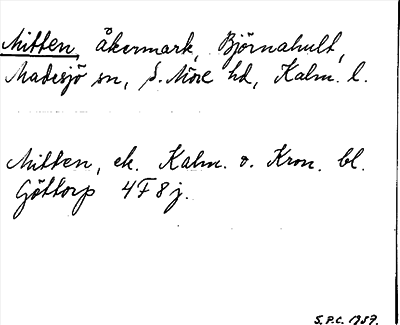 Mitten, åkermark, Björnahult,
Madesjö sn, S. Möre hd, Kalm. l.
Mitten, ek. Kalm. o. Kron. bl.
Göttorp 4F8j.
S.P.C. 1959.